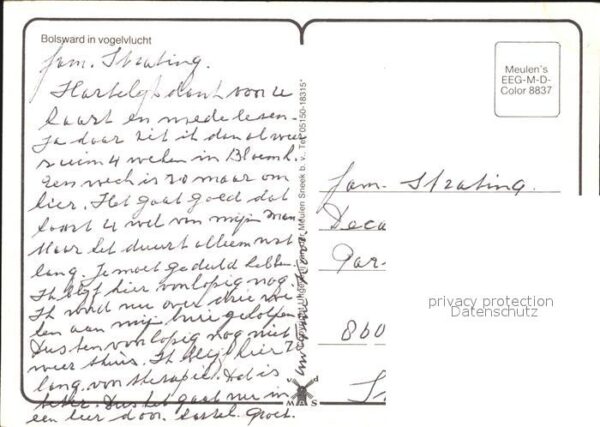 Bolsward in vogelvlucht
fam. Strating.
Hartelijk dank voor u
kaart en mede lezen.
Ja daar zit ik dan al weer
ruim 4 weken in Bloemk.
Een week is zo maar om
hier. Het gaat goed dat
hoort u wel van mijn man
Maar het duurt alleen wat
lang. Je moet geduld hebben.
Ik blijf hier voorlopig nog.
Ik word nu over drie we
ken aan mijn knie geholpen
Dus ben voorlopig nog niet
weer thuis. Ik blijf hier zo
lang voor therapie. Dat is
beter. Dus het gaat nu in
een keer door. Hartel. Groet.
Meulen Sneek b.v. Tel. 05150-18315*
Meulen's
EEG-M-D-
Color 8837
fam. Strating.
Deca
Par-
860
S
privacy protection
Datenschutz
MAS